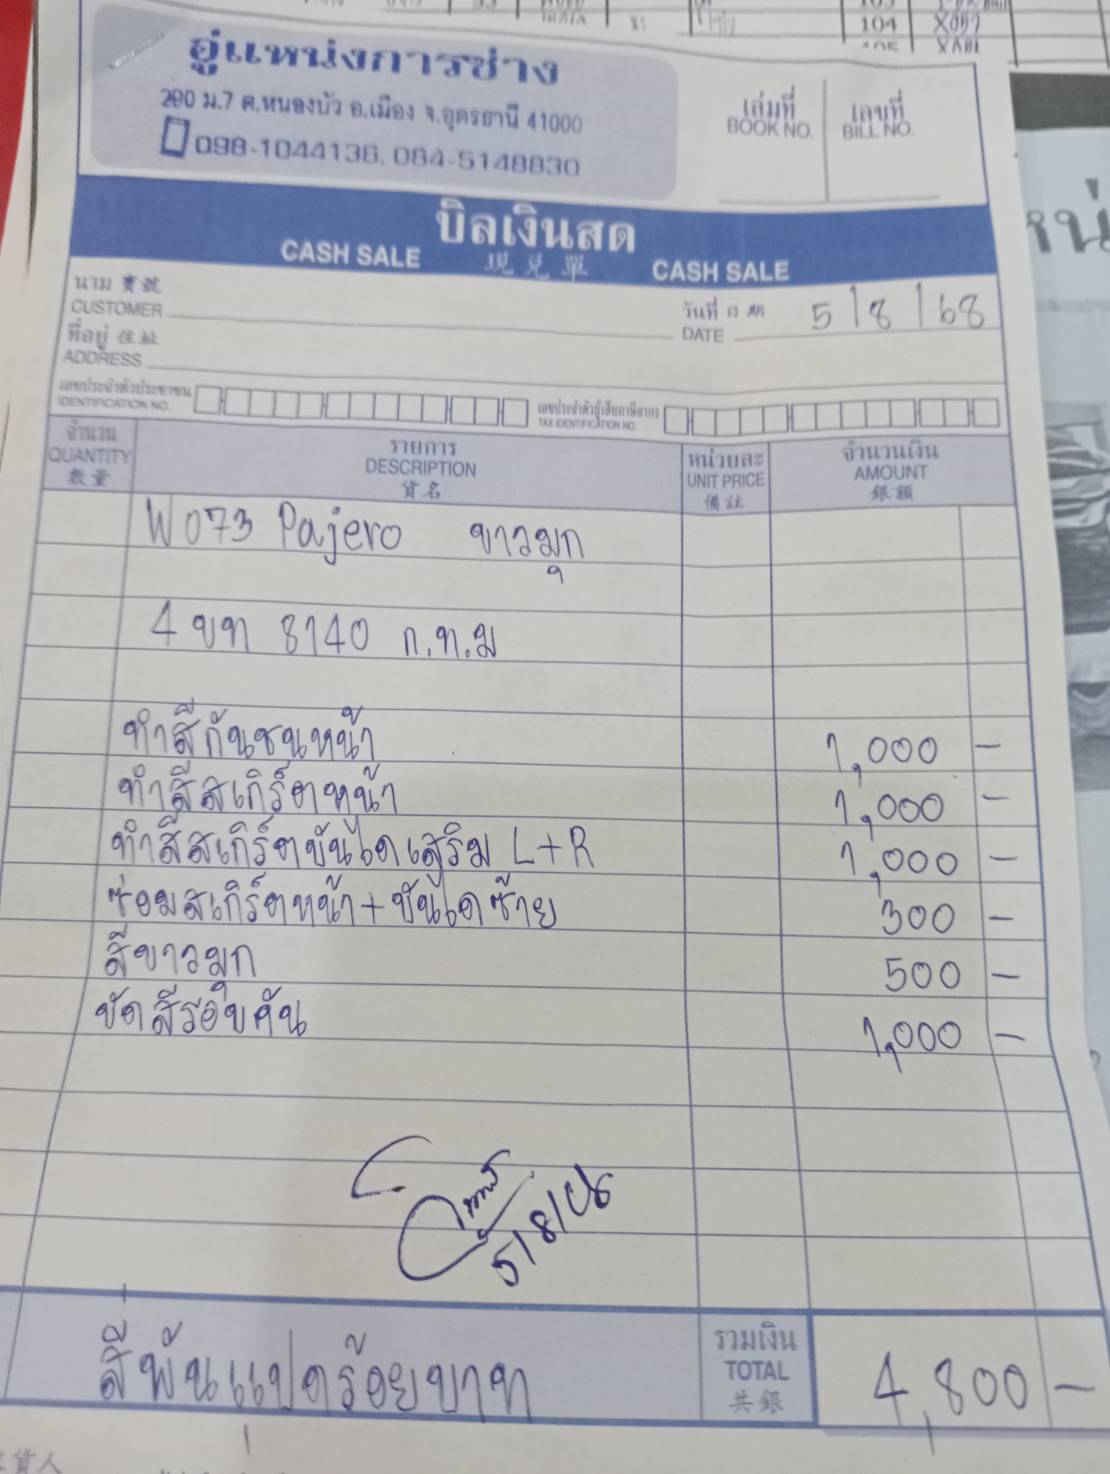 104
อู่แหน่งการช่าง
290 ม.7 ต.หนองบัว อ.เมือง จ.อุดรธานี 41000
098-1044136, 084-5148830
เล่มที่ เลขที่
BOOK NO. BILL NO.
บิลเงินสด
CASH SALE 現兑單 CASH SALE
นาม 寶號
CUSTOMER
วันที่ 日期 5/8/68
DATE
ที่อยู่ 住址
ADDRESS
เลขประจำตัวประชาชน
IDENTIFICATION NO.
เลขประจำตัวผู้เสียภาษีอากร
TAX IDENTIFICATION NO.
จำนวน รายการ หน่วยละ จำนวนเงิน
QUANTITY DESCRIPTION UNIT PRICE AMOUNT
數量 貨名 備註 銀額
W073 Pajero ขาวมุก
4 ขท 8140 ก.ท.ม
ทำสีกันชนหน้า 1,000 -
ทำสีสเกิร์ตหน้า 1,000 -
ทำสีสเกิร์ตบันไดเสริม L+R 1,000 -
ซ่อมสเกิร์ตหน้า + บันไดซ้าย 300 -
สีขาวมุก 500 -
ขัดสีรอบคัน 1,000 -
5/8/68
สี่พันแปดร้อยบาท
รวมเงิน
TOTAL 4,800 -
共銀
貨人